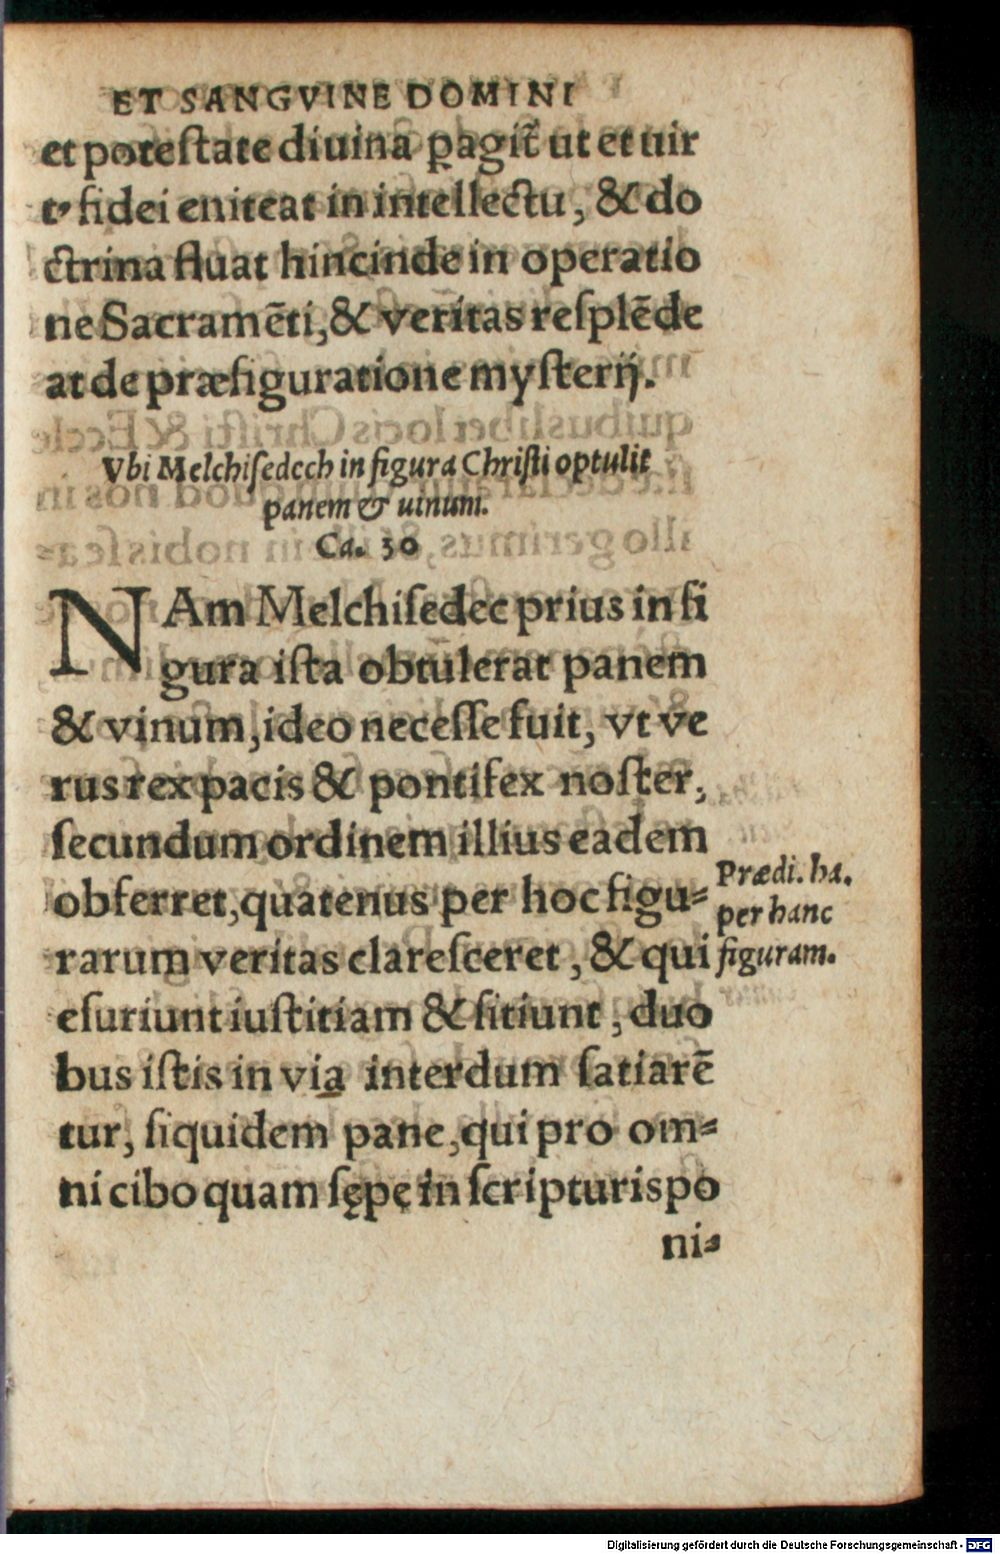 ET SANGVINE DOMINI
et potestate diuina ꝑagit᷑ ut et uir
tꝰ fidei eniteat in intellectu, & do
ctrina fluat hincinde in operatio
ne Sacramēti, & veritas resplēde
at de præfiguratione mysterij.
Vbi Melchisedech in figura Christi optulit
panem & uinum.
Ca. 30
NAm Melchisedec prius in fi
gura ista obtulerat panem
& vinum, ideo necesse fuit, vt ve
rus rex pacis & pontifex noster,
secundum ordinem illius eadem
obferret, quatenus per hoc figu-
rarum veritas claresceret, & qui
esuriunt iustitiam & sitiunt, duo
bus istis in via interdum satiarē
tur, siquidem pane, qui pro om-
ni cibo quam sępę in scripturis po
ni-
Prædi. ha.
per hanc
figuram.
Digitalisierung gefördert durch die Deutsche Forschungsgemeinschaft - DFG